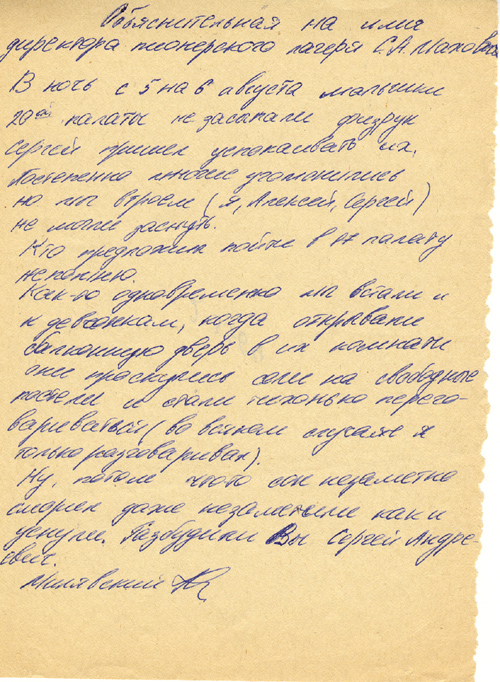 Объяснительная на имя
директора пионерского лагеря С.А. Махов
В ночь с 5 на 6 августа мальчики
20ой палаты не засыпали физрук
Сергей пришел успокаивать их.
Постепенно многие угомонились
но мы втроем (я, Алексей, Сергей)
не могли заснуть.
Кто предложил пойти в 17 палату
не помню.
Как-то одновременно мы встали и
к девчонкам, когда открывали
балконную дверь в их комнату
они проснулись сели на свободные
постели и стали тихонько перего-
вариваться (во всяком случае я
только разговаривал).
Ну, потом что сон незаметно
сморил даже незаметили как и
уснули. Разбудили Вы Сергей Андре-
евич.